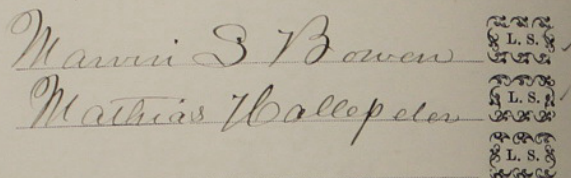 Marvin S Bowen L. S.
Mathias Hallopeter L. S.
L. S.